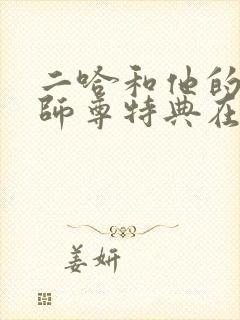 二哈和他的
師尊特典在
姜妍